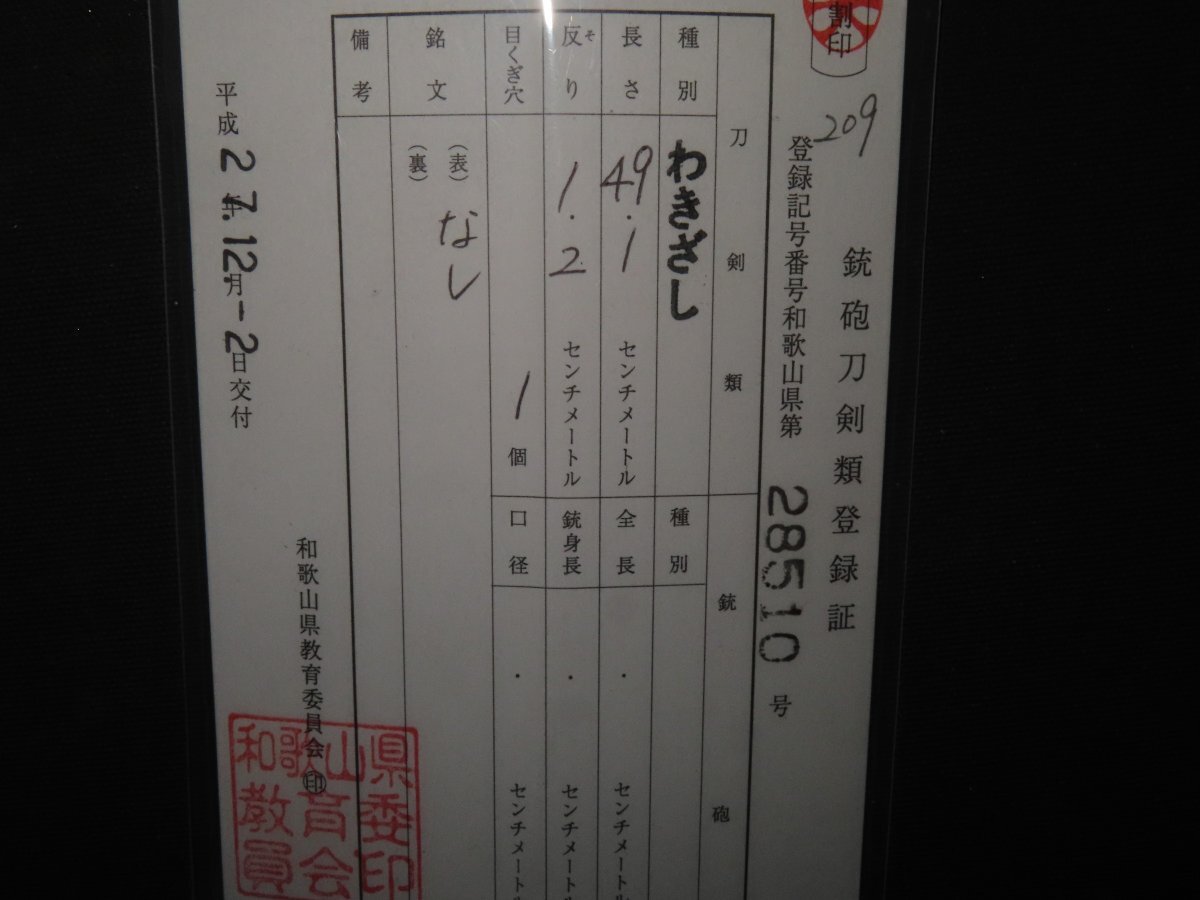 割印
209
銃砲刀剣類登録証
登録記号番号和歌山県第 28510 号
刀剣類
種別 わきざし
長さ 49.1 センチメートル
反り そ 1.2 センチメートル
目くぎ穴 1 個
銘文 (表) なし
(裏)
備考
銃砲
種別
全長 . センチメートル
銃身長 . センチメートル
口径 . センチメートル
平成 27年.12.月-2日交付
和歌山県教育委員会 印
和歌山県
教育委
員会印